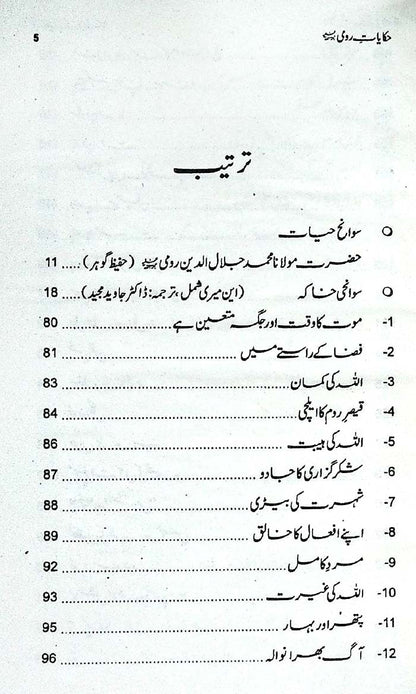 حکایاتِ رومی
5
ترتیب
سوانح حیات
حضرت مولانا محمد جلال الدین رومی (حفیظ گوہر)..... 11
سوانحی خاکہ (این میری شمل، ترجمہ: ڈاکٹر جاوید مجید)..... 18
1- موت کا وقت اور جگہ متعین ہے ..... 80
2- قضا کے راستے میں ..... 81
3- اللہ کی کمان ..... 83
4- قیصرِ روم کا ایلچی ..... 84
5- اللہ کی ہیبت ..... 86
6- شکر گزاری کا جادو ..... 87
7- شہرت کی بیڑی ..... 88
8- اپنے افعال کا خالق ..... 89
9- مردِ کامل ..... 92
10- اللہ کی غیرت ..... 93
11- پتھر اور بہار ..... 95
12- آگ بھرا نوالہ ..... 96